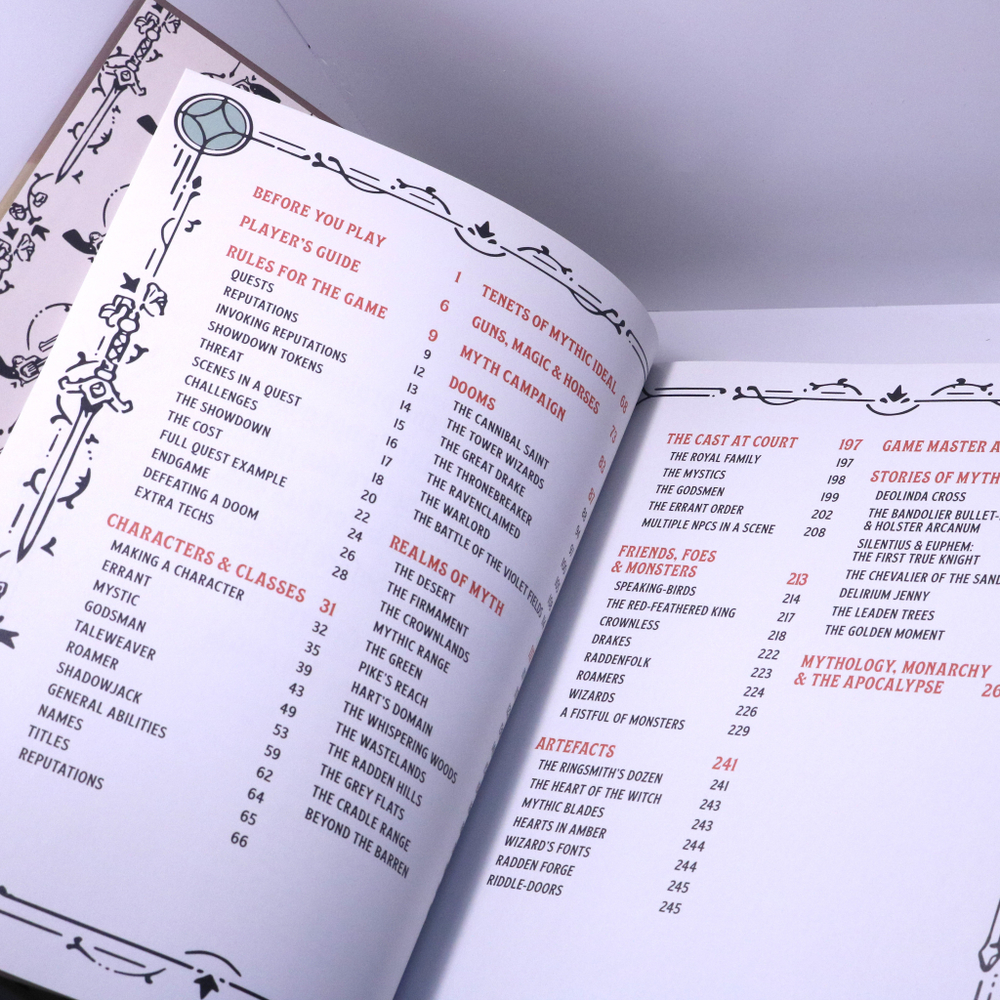 BEFORE YOU PLAY 1
PLAYER'S GUIDE 6
RULES FOR THE GAME 9
QUESTS 9
REPUTATIONS 12
INVOKING REPUTATIONS 13
SHOWDOWN TOKENS 14
THREAT 15
SCENES IN A QUEST 16
CHALLENGES 17
THE SHOWDOWN 18
THE COST 20
FULL QUEST EXAMPLE 22
ENDGAME 24
DEFEATING A DOOM 26
EXTRA TECHS 28
CHARACTERS & CLASSES 31
MAKING A CHARACTER 32
ERRANT 35
MYSTIC 39
GODSMAN 43
TALEWEAVER 49
ROAMER 53
SHADOWJACK 59
GENERAL ABILITIES 62
NAMES 64
TITLES 65
REPUTATIONS 66
TENETS OF MYTHIC IDEAL 68
GUNS, MAGIC & HORSES 73
MYTH CAMPAIGN
DOOMS
THE CANNIBAL SAINT
THE TOWER WIZARDS
THE GREAT DRAKE
THE THRONEBREAKER
THE RAVENCLAIMED
THE WARLORD
THE BATTLE OF THE VIOLET FIELDS
REALMS OF MYTH
THE DESERT
THE FIRMAMENT
THE CROWNLANDS
MYTHIC RANGE
THE GREEN
PIKE'S REACH
HART'S DOMAIN
THE WHISPERING WOODS
THE WASTELANDS
THE RADDEN HILLS
THE GREY FLATS
THE CRADLE RANGE
BEYOND THE BARREN
THE CAST AT COURT 197
THE ROYAL FAMILY 197
THE MYSTICS 198
THE GODSMEN 199
THE ERRANT ORDER 202
MULTIPLE NPCS IN A SCENE 208
FRIENDS, FOES
& MONSTERS 213
SPEAKING-BIRDS 214
THE RED-FEATHERED KING 217
CROWNLESS 218
DRAKES 222
RADDENFOLK 223
ROAMERS 224
WIZARDS 226
A FISTFUL OF MONSTERS 229
ARTEFACTS 241
THE RINGSMITH'S DOZEN 241
THE HEART OF THE WITCH 243
MYTHIC BLADES 243
HEARTS IN AMBER 244
WIZARD'S FONTS 244
RADDEN FORGE 245
RIDDLE-DOORS 245
GAME MASTER A
STORIES OF MYTH
DEOLINDA CROSS
THE BANDOLIER BULLET-
& HOLSTER ARCANUM
SILENTIUS & EUPHEM:
THE FIRST TRUE KNIGHT
THE CHEVALIER OF THE SAN
DELIRIUM JENNY
THE LEADEN TREES
THE GOLDEN MOMENT
MYTHOLOGY, MONARCHY
& THE APOCALYPSE 26